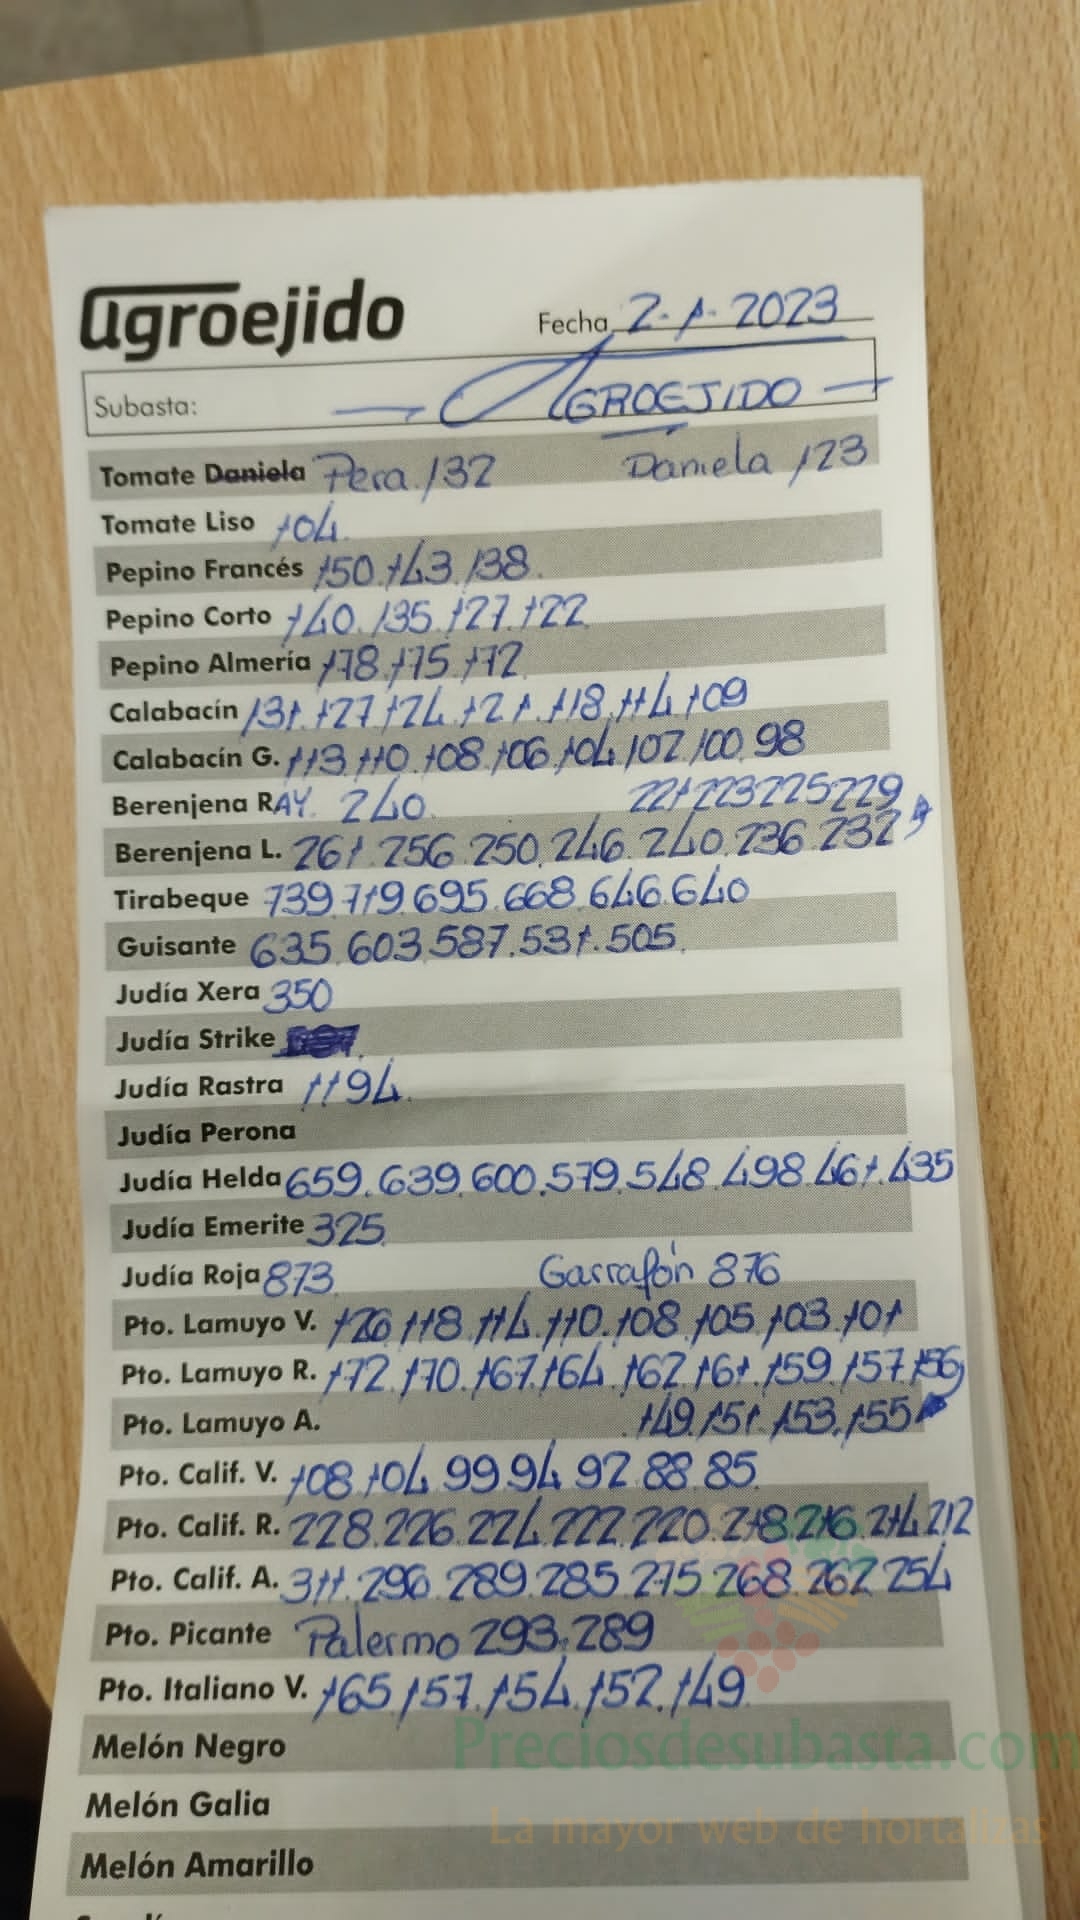 agroejido
Fecha 2-1-2023
Subasta: — AGROEJIDO —
Tomate Daniela Pera 132 Daniela 123
Tomate Liso 104
Pepino Francés 150.143.138
Pepino Corto 140.135.127.122
Pepino Almería 178.175.172
Calabacín 131.127.124.121.118.114.109
Calabacín G. 113.110.108.106.104.102.100.98
Berenjena RAY. 240. 221 223 225 229
Berenjena L. 261.256.250.246.240.236.232
Tirabeque 739.719.695.668.646.640
Guisante 635.603.587.531.505
Judía Xera 350
Judía Strike
Judía Rastra 1194.
Judía Perona
Judía Helda 659.639.600.579.548.498.461.435
Judía Emerite 325
Judía Roja 873 Garrafón 876
Pto. Lamuyo V. 126.118.114.110.108.105.103.101
Pto. Lamuyo R. 172.170.167.164.162.161.159.157.156
Pto. Lamuyo A. 149.151.153.155
Pto. Calif. V. 108.104.99.94.92.88.85
Pto. Calif. R. 228.226.224.222.220.218.216.214.212
Pto. Calif. A. 311.296.289.285.275.268.262.254
Pto. Picante Palermo 293.289
Pto. Italiano V. 165.157.154.152.149
Melón Negro
Preciosdesubasta.com
Melón Galia
La mayor web de hortalizas
Melón Amarillo